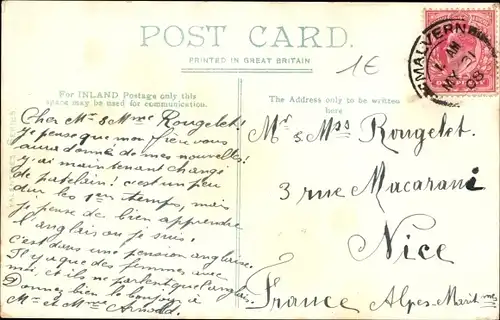 POST CARD.
PRINTED IN GREAT BRITAIN
1E
MALVERN
1 AM
MY 21
08
For INLAND Postage only this
space may be used for communication.
The Address only to be written
here
Cher Mr & Mme Rougelet!
Je pense que mon frère vous
aura donné de mes nouvelles!
J'y ai maintenant changé
de patelain! c'est un peu
dur les 1ers temps, mais
je pense de bien apprendre
l'anglais ou je suis,
c'est dans une pension anglaise.
Il y a que des femmes avec
moi, et ils ne parlent que l'anglais.
Donnez bien le bonjour à
Mr et Mme Arnold.
Mr & Mss Rougelet.
3 rue Macarani
Nice
France Alpes-Maritmes